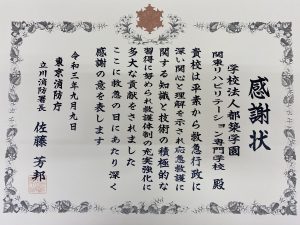 感謝状
学校法人都築学園
関東リハビリテーション専門学校 殿
貴校は平素から救急行政に
深い関心と理解を示され応急救護に
関する知識と技術の積極的な
習得に努められ救護体制の充実強化に
多大な貢献をされました
ここに救急の日にあたり深く
感謝の意を表します
令和三年九月九日
東京消防庁
立川消防署長 佐藤芳邦